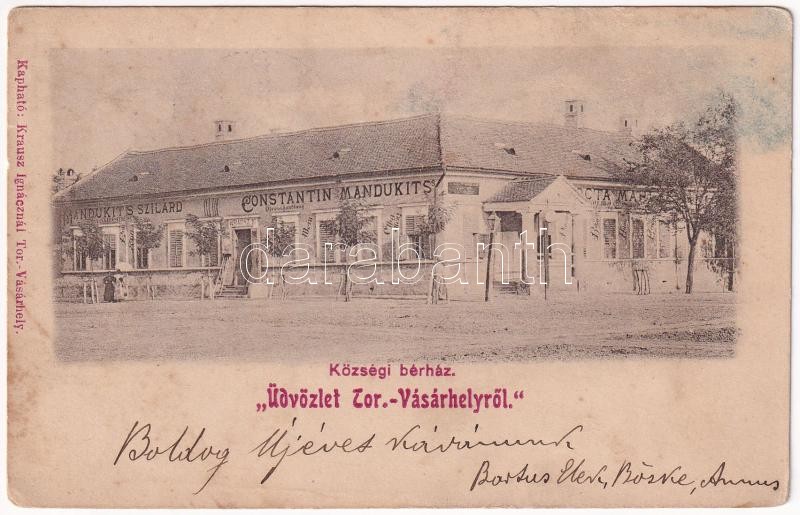 Kapható: Krausz Ignácznál Tor.-Vásárhely.
MANDUKITS SZILÁRD
CONSTANTIN MANDUKITS
darabanth
Községi bérház.
„Üdvözlet Tor.-Vásárhelyről."
Boldog Újévet kívánunk
Bartus Elek, Böske, Annus